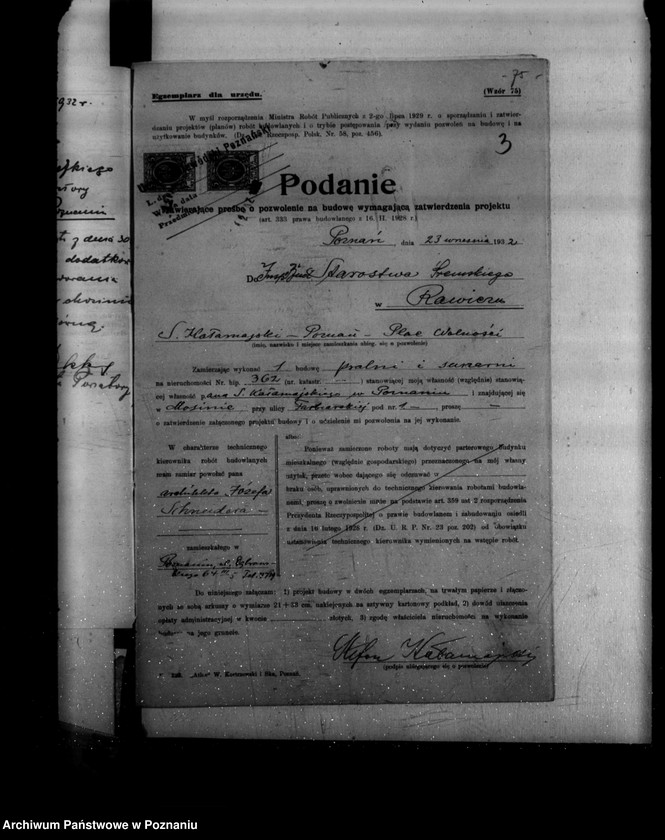 Egzemplarz dla urzędu.
(Wzór 75)
75
3
W myśl rozporządzenia Ministra Robót Publicznych z 2-go lipca 1929 r. o sporządzaniu i zatwier-
dzaniu projektów (planów) robót budowlanych i o trybie postępowania przy wydaniu pozwoleń na budowę i na
użytkowanie budynków, (Dz. Rzeczposp. Polsk. Nr. 58, poz. 456).
Podanie
zawierające prośbę o pozwolenie na budowę wymagającą zatwierdzenia projektu
(art. 333 prawa budowlanego z 16. II. 1928 r.)
Poznań dnia 23 września 1932
Do Starostwa Śremskiego
w Rawiczu
S. Kałamajski – Poznań – Plac Wolności
(imię, nazwisko i miejsce zamieszkania ubieg. się o pozwolenie)
Zamierzając wykonać 1 budowę pralni i suszarni
na nieruchomości Nr. hip. 362 (nr. katastr. — ) stanowiącej moją własność (względnie) stanowią-
cej własność pana S. Kałamajskiego w Poznaniu i znajdującej się
w Mosinie przy ulicy Farbiarskiej pod nr. 1 — , proszę —
o zatwierdzenie załączonego projektu budowy i o udzielenie mi pozwolenia na jej wykonanie.
W charakterze technicznego
kierownika robót budowlanych
mam zamiar powołać pana
architekta Józefa
Schneidera —
zamieszkałego w
Poznaniu, ul.
albo:
Ponieważ zamierzone roboty mają dotyczyć parterowego budynku
mieszkalnego (względnie gospodarskiego) przeznaczonego na mój własny
użytek, przeto wobec dającego się odczuwać w
braku osób, uprawnionych do technicznego kierowania robotami budowla-
nemi, proszę o zwolnienie mnie na podstawie art. 359 ust 2 rozporządzenia
Prezydenta Rzeczypospolitej o prawie budowlanem i zabudowaniu osiedli
z dnia 16 lutego 1928 r. (Dz. U. R. P. Nr. 23 poz. 202) od obowiązku
ustanowienia technicznego kierownika wymienionych na wstępie robót.
Do niniejszego załączam: 1) projekt budowy w dwóch egzemplarzach, na trwałym papierze i złączo-
nych ze sobą arkuszy o wymiarze 21 + 33 cm. naklejonych na sztywny kartonowy podkład, 2) dowód uiszczenia
opłaty administracyjnej w kwocie złotych, 3) zgodę właściciela nieruchomości na wykonanie
na jego gruncie.
Stefan Kałamajski
(podpis ubiegającego się o pozwolenie)
Zakł. „Atko" W. Kostrzewski i Ska, Poznań.
Archiwum Państwowe w Poznaniu